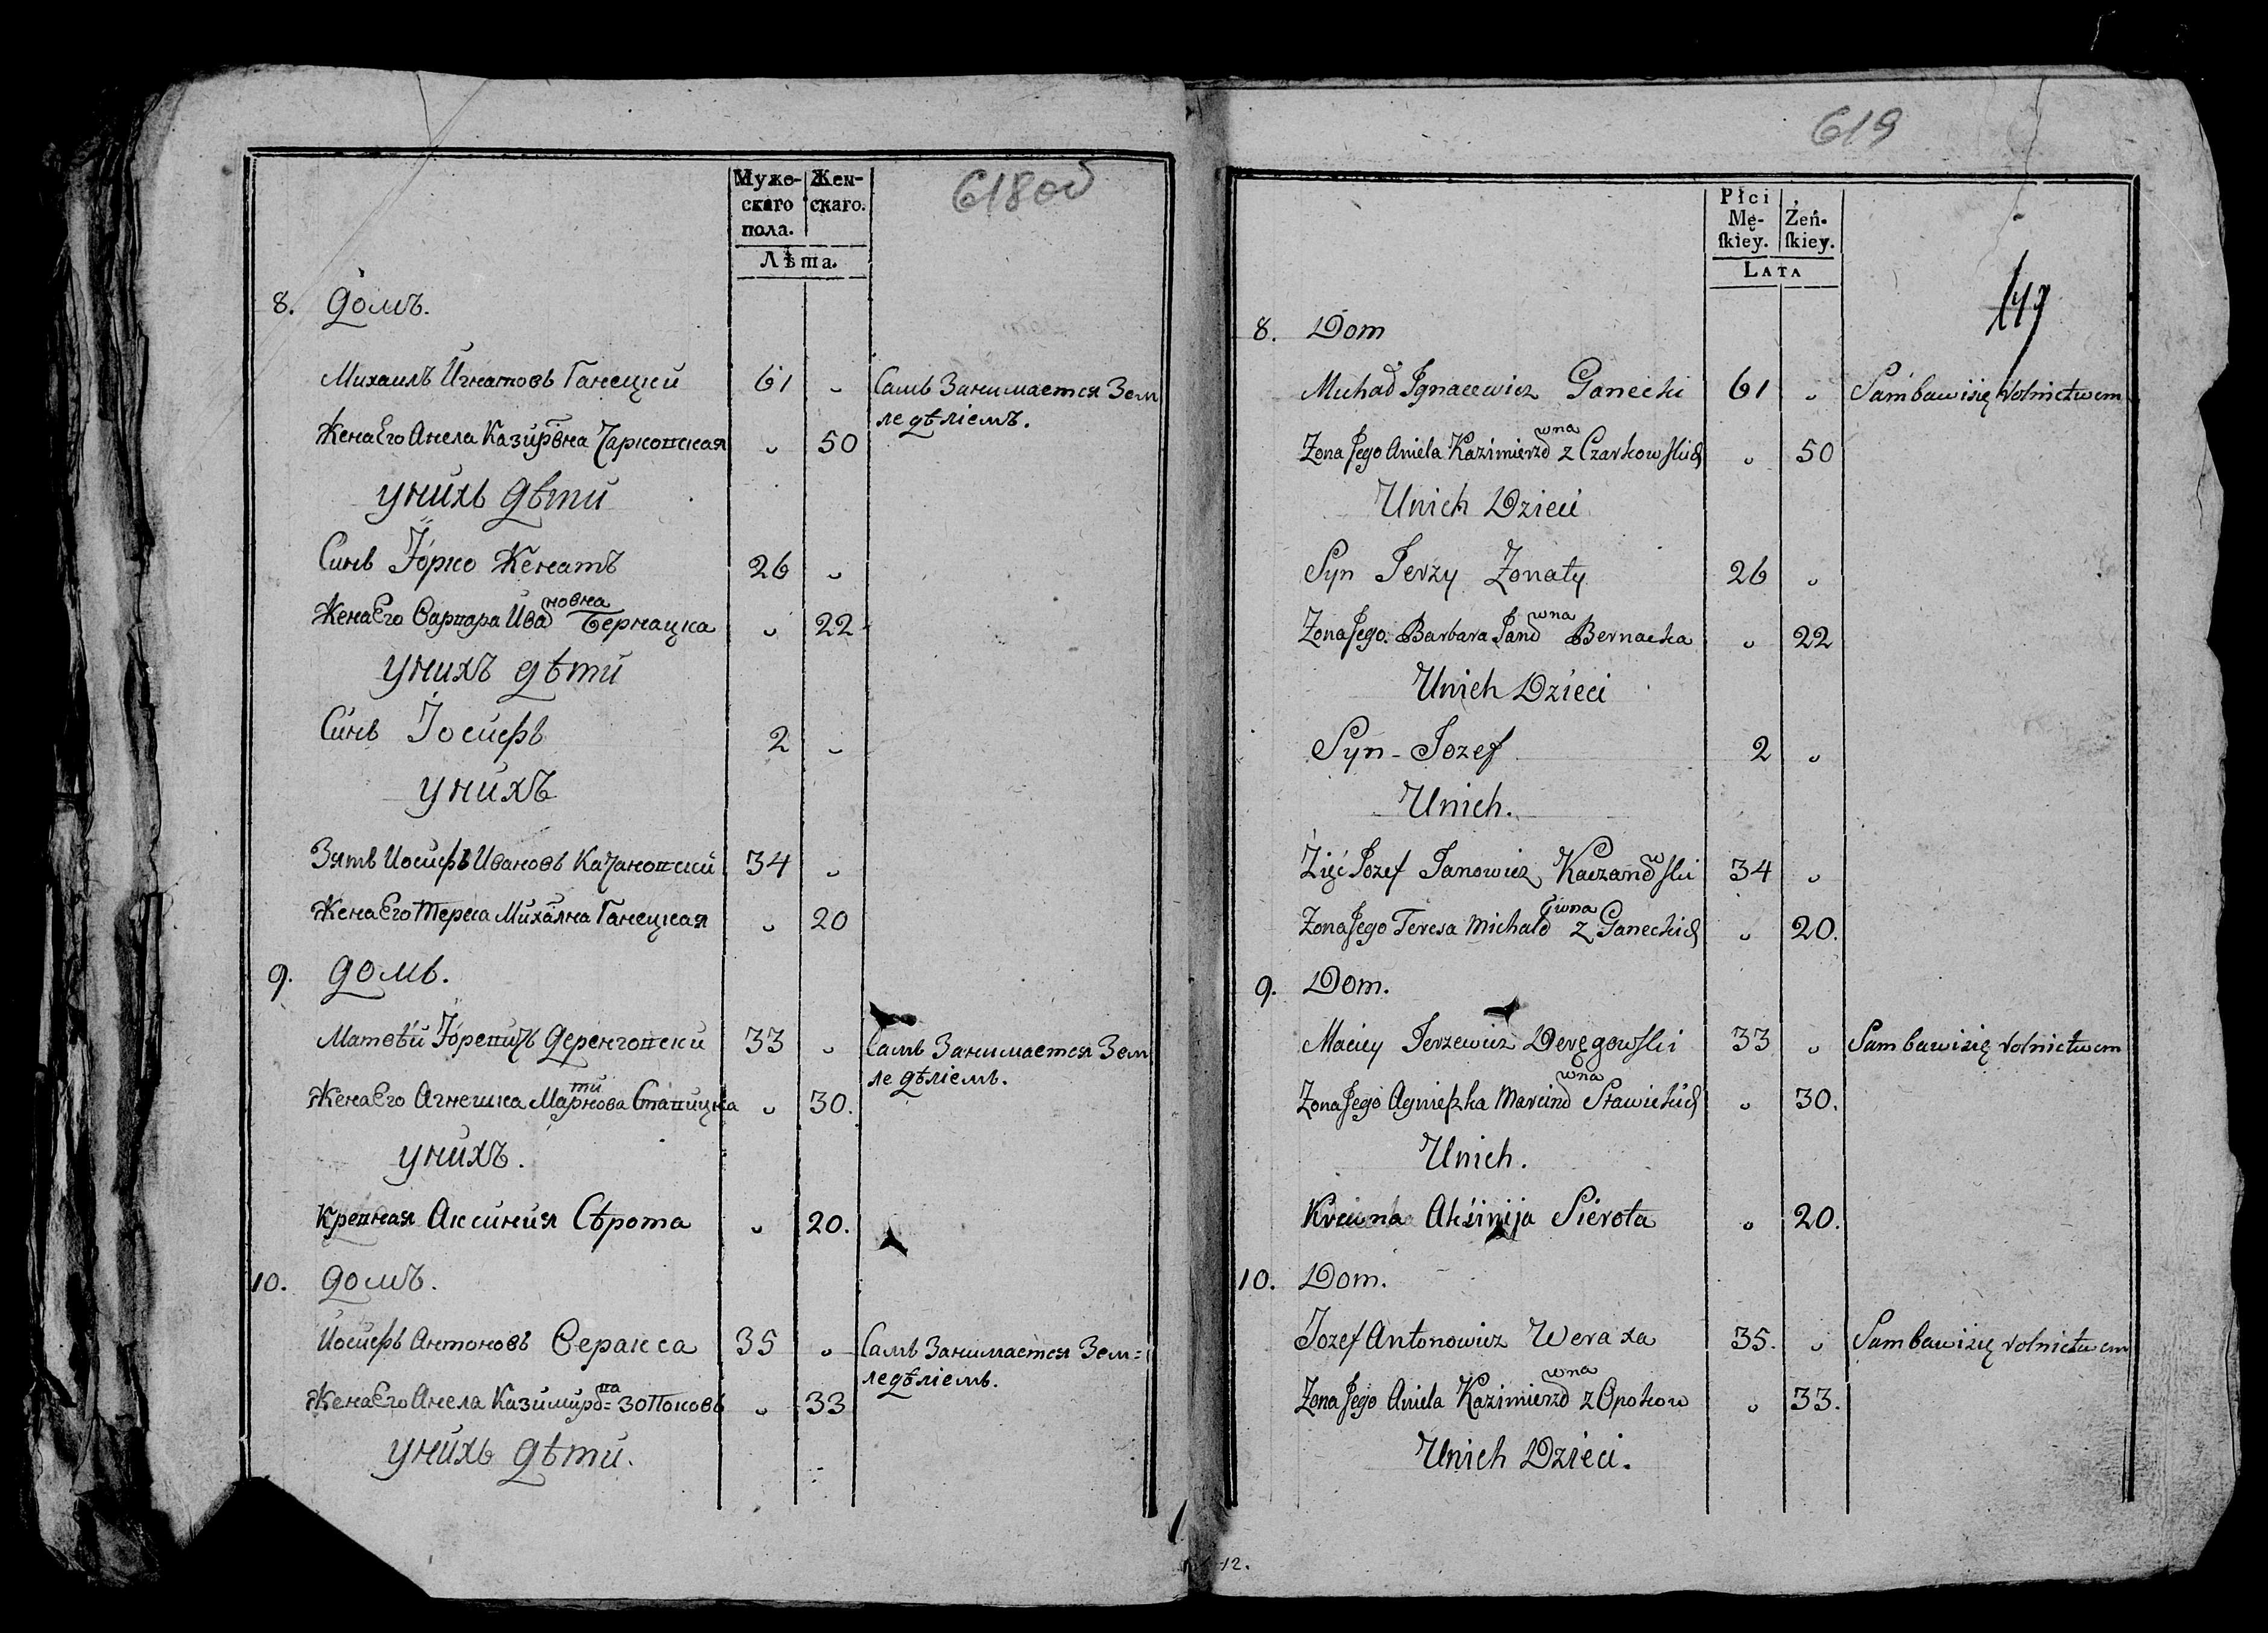 618об
Муже- Жен-
скаго скаго.
пола.
Лѣта.
8. Домъ.
Михаилъ Игнатовъ Ганецки 61 „ Самъ Занимается Зем
ледѣліемъ.
Жена Его Анела Казимрвна Чарковская „ 50
У нихъ Дѣти
Синъ Юрко Женатъ 26 „
Жена Его Варвара Ивановна Бернацка „ 22
У нихъ дѣти
Синъ Іосифъ 2 „
У нихъ
Зять Иосифъ Ивановъ Качановский 34 „
Жена Его Тереса Михална Ганецкая „ 20
9. Домъ.
Матвѣй Юревичъ Деренговски 33 „ Самъ Занимается Зем
ледѣліемъ.
Жена Его Агнешка Мартинова Ставицка „ 30.
У нихъ.
Крепная Аксиния Сѣрота „ 20.
10. Домъ.
Иосифъ Антоновъ Веракса 35 „ Самъ Занимается Зем=
ледѣліемъ.
Жена Его Анела Казимирова= „ 33
У нихъ Дѣти.
619
Płci
Mę- Żeń-
ſkiey. ſkiey.
LATA
8. Dom
Michał Ignacewicz Ganecki 61 „ Sam bawi się Rolnictwem
Żona Jego Aniela Kazimierzowna z Czarkowskich „ 50
U nich Dzieci
Syn Jerzy Żonaty 26 „
Żona Jego Barbara Janowna Bernacka „ 22
U nich Dzieci
Syn - Jozef 2 „
U nich.
Zięć Jozef Janowicz Kaczanowski 34 „
Żona Jego Teresa Michałowna z Ganeckich „ 20.
9. Dom.
Maciey Jerzewicz Deręgowski 33 „ Sam bawi się Rolnictwem
Żona Jego Agnieszka Marcinowna Stawickich „ 30.
U nich.
Aksinija Sierota „ 20.
10. Dom.
Jozef Antonowicz Weraxa 35. „ Sam bawi się Rolnictwem
Żona Jego Aniela Kazimierzowna z Opokow „ 33.
U nich Dzieci.
12.